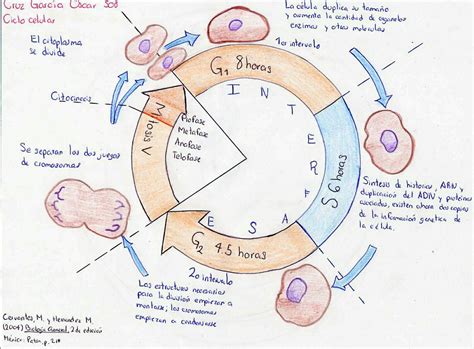 Cruz García Oscar 508
Ciclo celular
El citoplasma
se divide
Citocinesis
La célula duplica su tamaño
y aumenta la cantidad de organelos
enzimas y otras moléculas
1er intervalo
G1 8 horas
INTERFASE
S 6 horas
G2 4.5 horas
Miosis V
Mofase
Metafase
Anafase
Telofase
Se separan los dos juegos
de cromosomas
Síntesis de histonas, ARN y
duplicación del ADN y proteínas
asociadas, existen ahora dos copias
de la información genética de
la célula.
2o intervalo
Las estructuras necesarias
para la división empiezan a
montarse; los cromosomas
empiezan a condensarse
Cervantes M. y Hernández M.
(2004) Biología General, 2da edición
México: Patria, p. 218